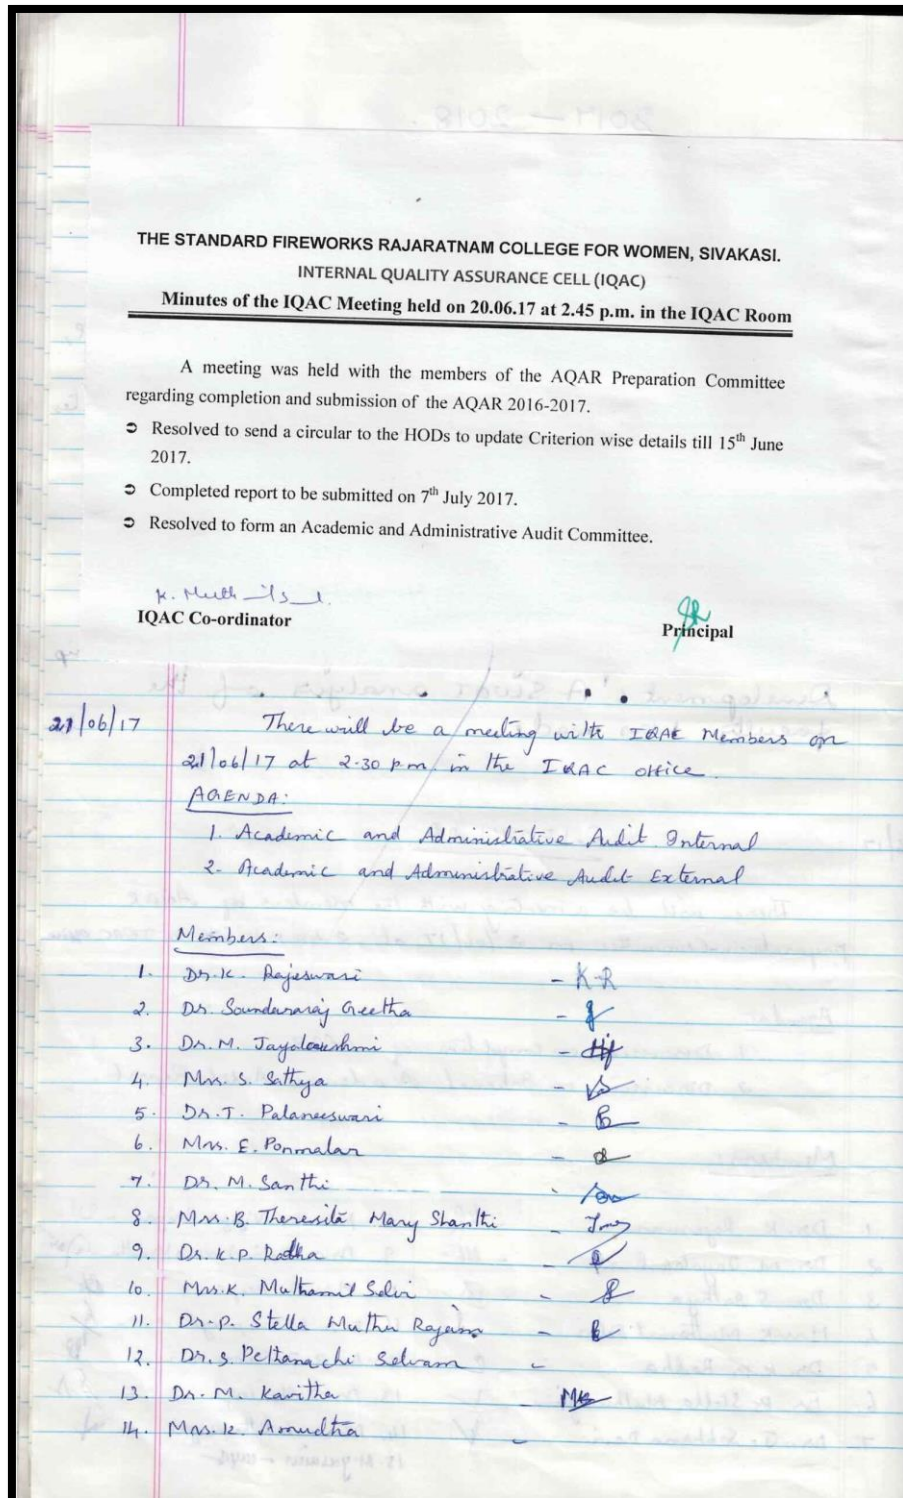 THE STANDARD FIREWORKS RAJARATNAM COLLEGE FOR WOMEN, SIVAKASI.
INTERNAL QUALITY ASSURANCE CELL (IQAC)
Minutes of the IQAC Meeting held on 20.06.17 at 2.45 p.m. in the IQAC Room
A meeting was held with the members of the AQAR Preparation Committee
regarding completion and submission of the AQAR 2016-2017.
➲ Resolved to send a circular to the HODs to update Criterion wise details till 15th June
2017.
➲ Completed report to be submitted on 7th July 2017.
➲ Resolved to form an Academic and Administrative Audit Committee.
IQAC Co-ordinator
Principal
21/06/17 There will be a meeting with IQAC Members on
21/06/17 at 2.30 p.m. in the IQAC office.
AGENDA:
1. Academic and Administrative Audit Internal
2. Academic and Administrative Audit External
Members:
1. Dr. K. Rajeswari - K.R
2. Dr. Soundararaj Geetha -
3. Dr. M. Jayalakshmi -
4. Mrs. S. Sathya -
5. Dr. T. Palaneeswari -
6. Mrs. E. Ponmalar -
7. Dr. M. Santhi -
8. Mrs. B. Theresita Mary Shanthi -
9. Dr. K. P. Radha -
10. Mrs. K. Muthamil Selvi -
11. Dr. P. Stella Muthu Rajam -
12. Dr. S. Peltanachi Selvam -
13. Dr. M. Kavitha -
14. Mrs. K. Amudha -